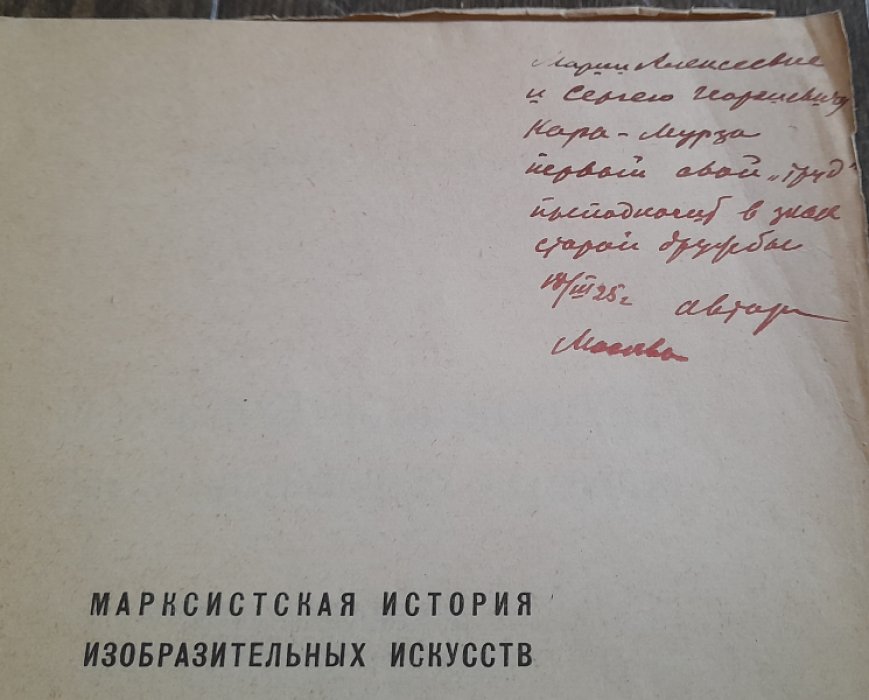 Марии Алексеевне
и Сергею Георгиевичу
Кара-Мурза
первый свой „труд"
преподносит в знак
старой дружбы
18/III 25 г.
автор
Москва
МАРКСИСТСКАЯ ИСТОРИЯ
ИЗОБРАЗИТЕЛЬНЫХ ИСКУССТВ